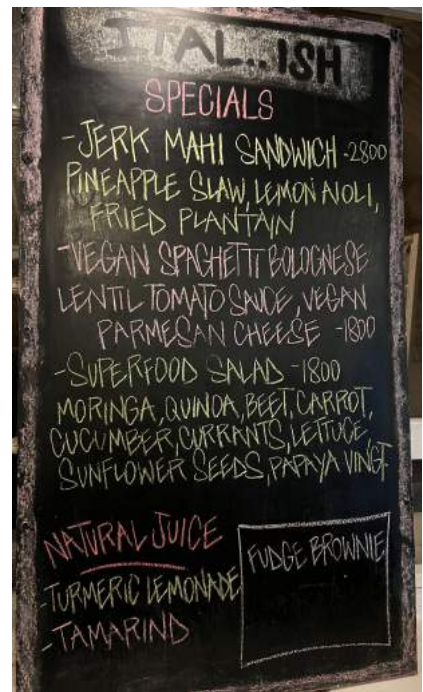 ITAL..ISH
SPECIALS
-JERK MAHI SANDWICH -2800
PINEAPPLE SLAW, LEMON AIOLI,
FRIED PLANTAIN
-VEGAN SPAGHETTI BOLOGNESE
LENTIL TOMATO SAUCE, VEGAN
PARMESAN CHEESE -1800
-SUPERFOOD SALAD -1800
MORINGA, QUINOA, BEET, CARROT,
CUCUMBER, CURRANTS, LETTUCE,
SUNFLOWER SEEDS, PAPAYA VINGT
NATURAL JUICE
-TURMERIC LEMONADE
-TAMARIND
FUDGE BROWNIE